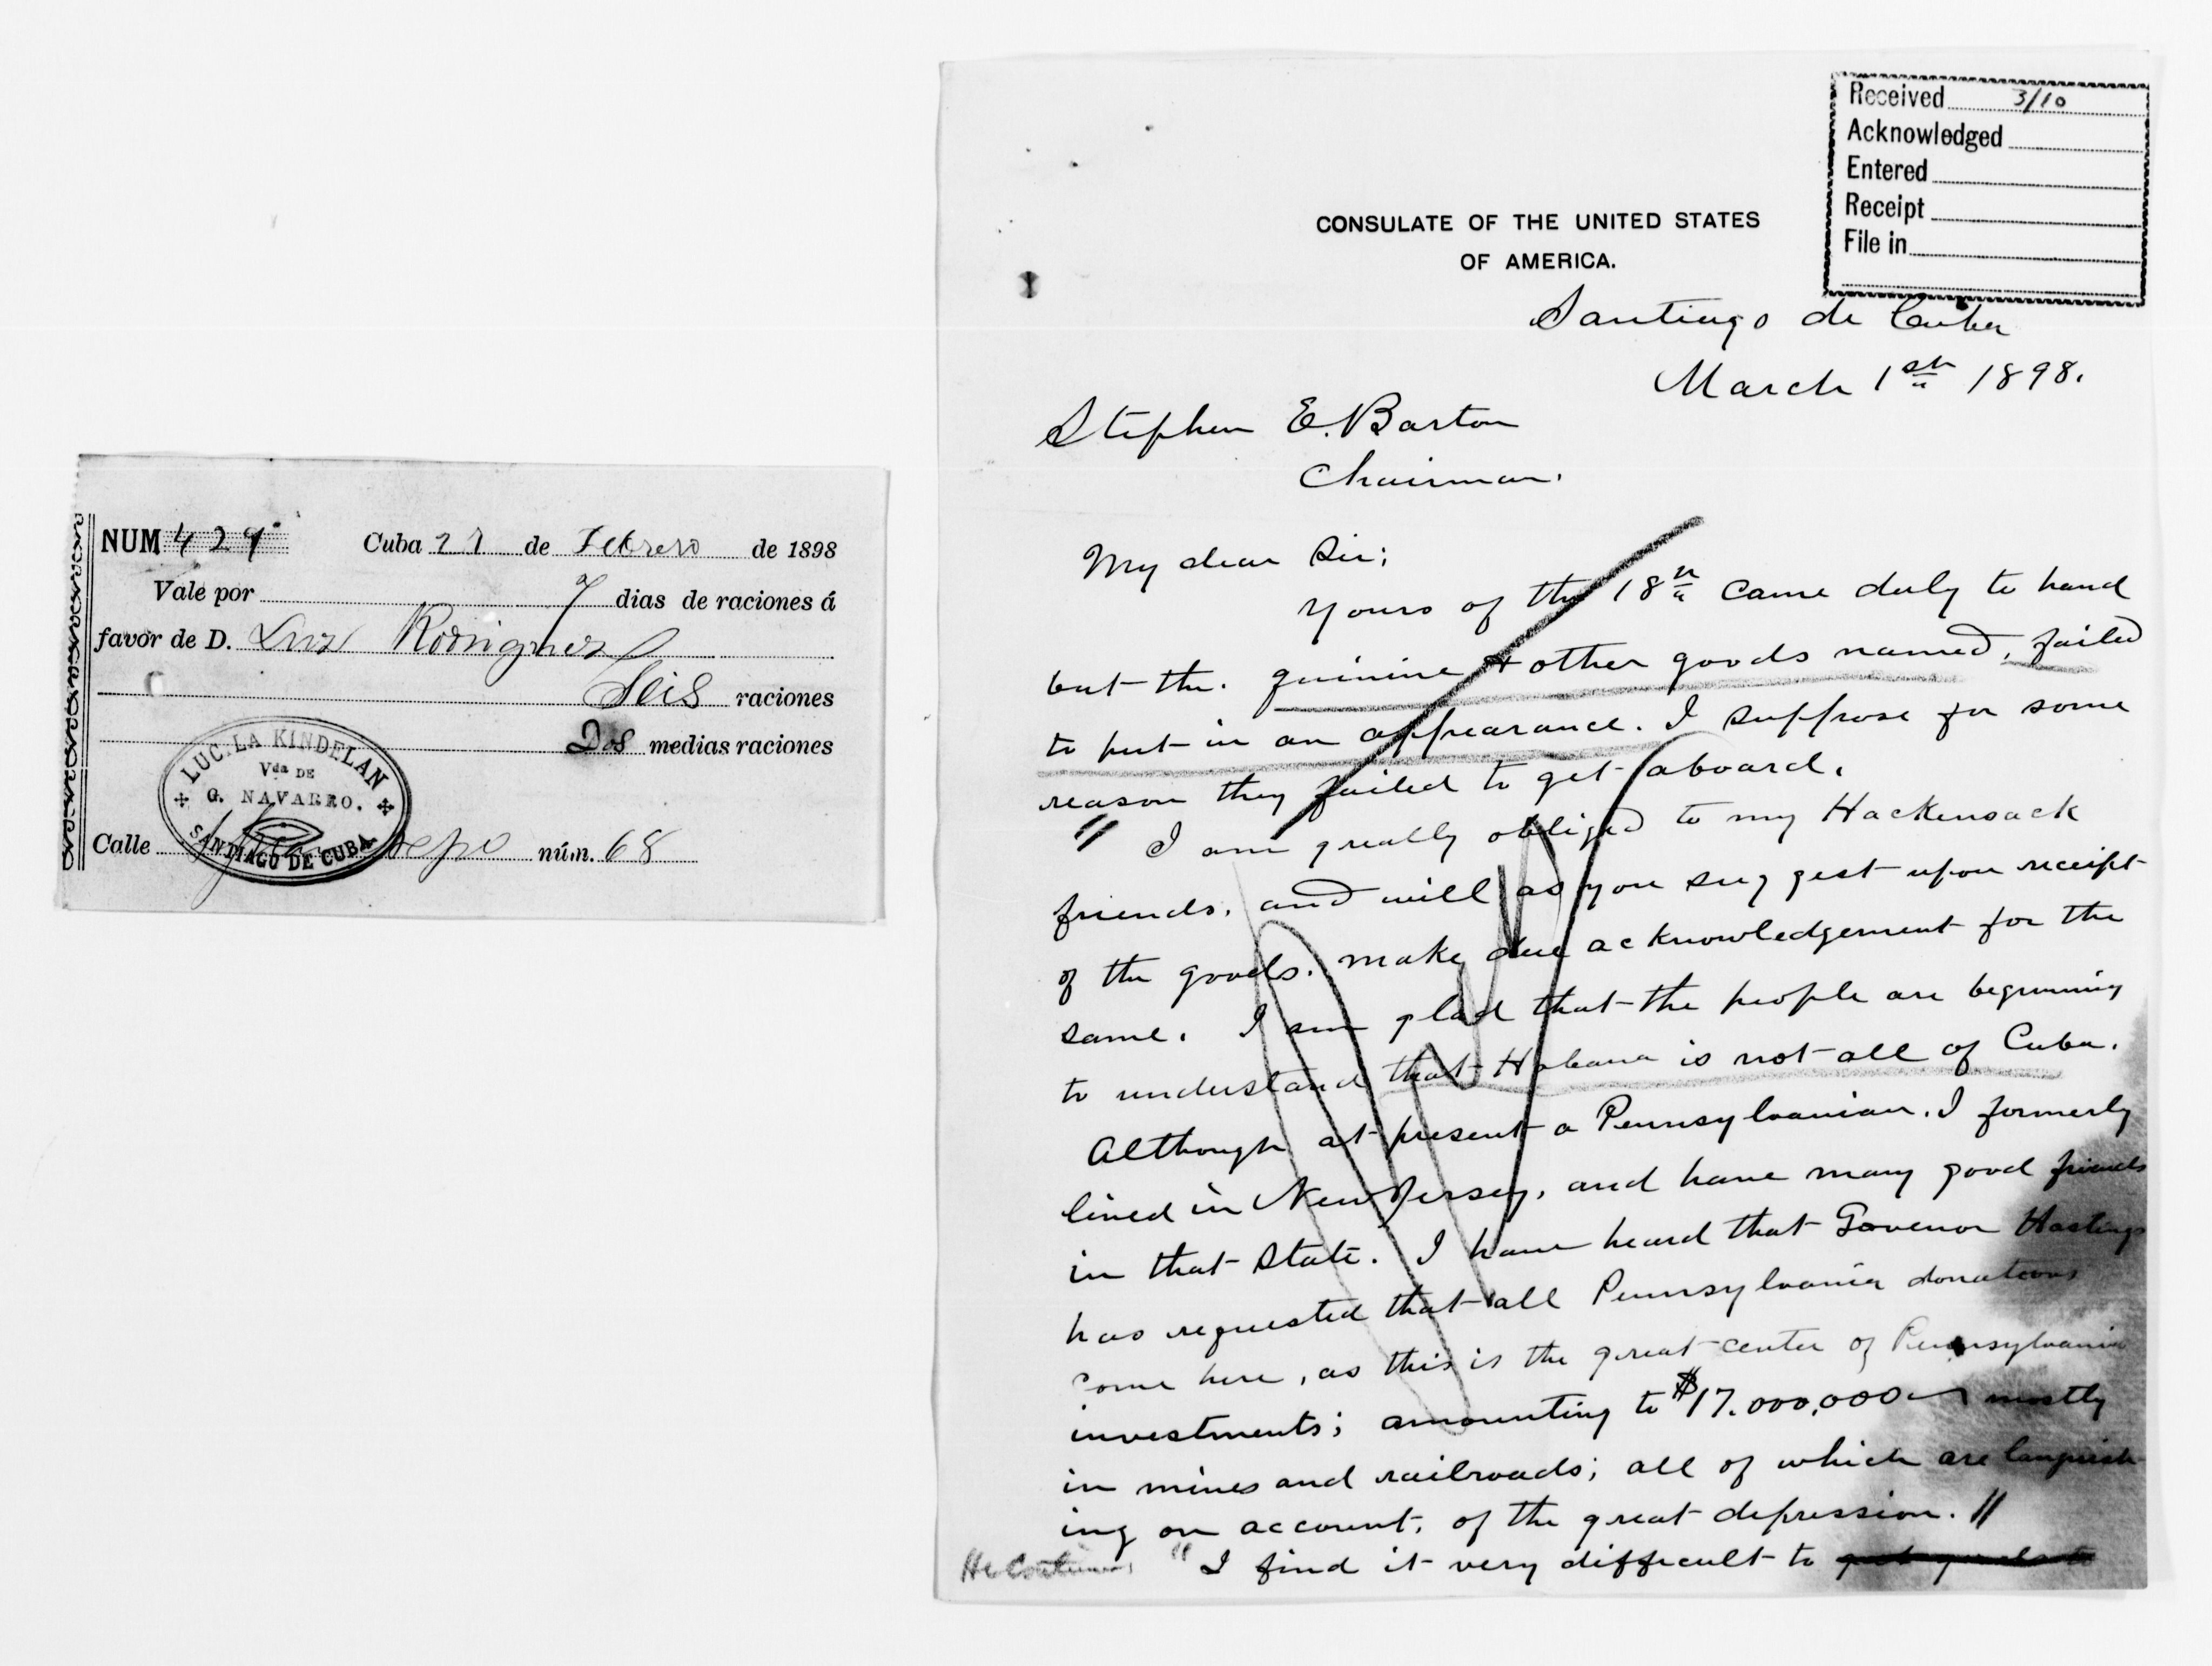 NUM 429
Cuba 21 de Febrero de 1898
Vale por 7 dias de raciones á
favor de D. Luis Rodriguez
Seis raciones
Dos medias raciones
LUC. LA KINDELAN
Vda DE
G. NAVARRO.
SANTIAGO DE CUBA
Calle núm. 68
Received 3/10
Acknowledged
Entered
Receipt
File in
CONSULATE OF THE UNITED STATES
OF AMERICA.
Santiago de Cuba
March 1st 1898.
Stephen E. Barton
Chairman.
My dear Sir;
Yours of the 18th came duly to hand
but the quinine & other goods named, failed
to put in an appearance. I suppose for some
reason they failed to get aboard.
" I am greatly obliged to my Hackensack
friends, and will as you suggest upon receipt
of the goods, make due acknowledgement for the
same. I am glad that the people are beginning
to understand that Habana is not all of Cuba.
Although at present a Pennsylvanian, I formerly
lived in New Jersey, and have many good friends
in that State. I have heard that Govenor Hastings
has requested that all Pennsylvania donations
come here, as this is the great center of Pennsylvania
investments; amounting to $17.000,000 mostly
in mines and railroads; all of which are languish
ing on account, of the great depression. "
He Continues "I find it very difficult to